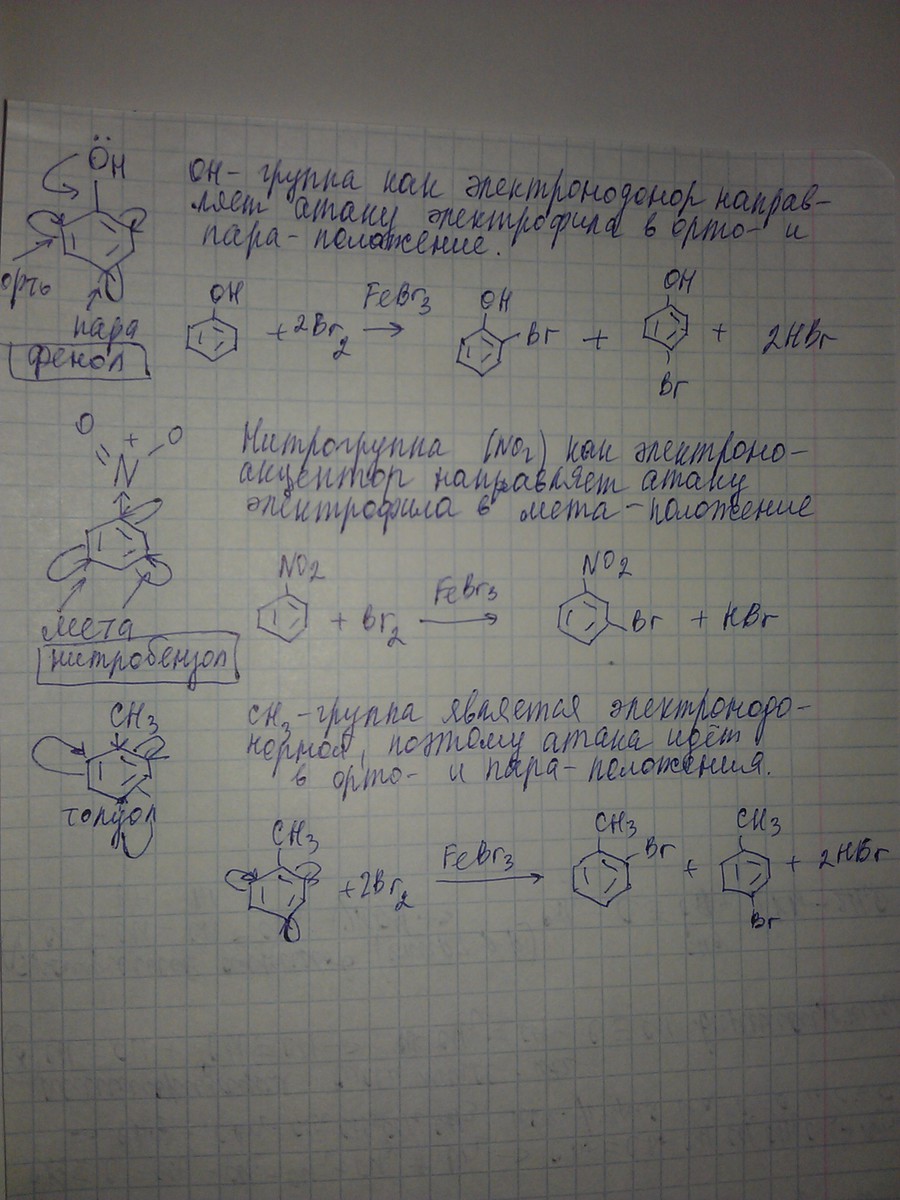 ÖH
OH- группа как электронодонор направ-
ляет атаку электрофила в орто- и
пара-положение.
орто
пара
фенол
OH
+ 2Br2
FeBr3
→
OH
Br
+
OH
Br
+ 2HBr
O
+
O
N
Нитрогруппа (NO2) как электроно-
акцептор направляет атаку
электрофила в мета-положение
мета
нитробензол
NO2
+ Br2
FeBr3
→
NO2
Br
+ HBr
CH3
толуол
CH3-группа является электронодо-
норной, поэтому атака идёт
в орто- и пара-положения.
CH3
+ 2Br2
FeBr3
→
CH3
Br
+
CH3
Br
+ 2HBr